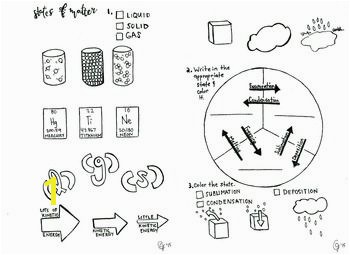 states of matter
1. LIQUID
SOLID
GAS
80
Hg
200.59
MERCURY
22
Ti
47.867
TITANIUM
10
Ne
20.180
NEON
(l)
(g)
(s)
LOTS OF
KINETIC
ENERGY
KINETIC
ENERGY
LITTLE
KINETIC
ENERGY
2. Write in the
appropriate
state &
color
it.
Evaporation
Condensation
Melting
Freezing
Sublimation
Deposition
3. Color the state.
SUBLIMATION
DEPOSITION
CONDENSATION